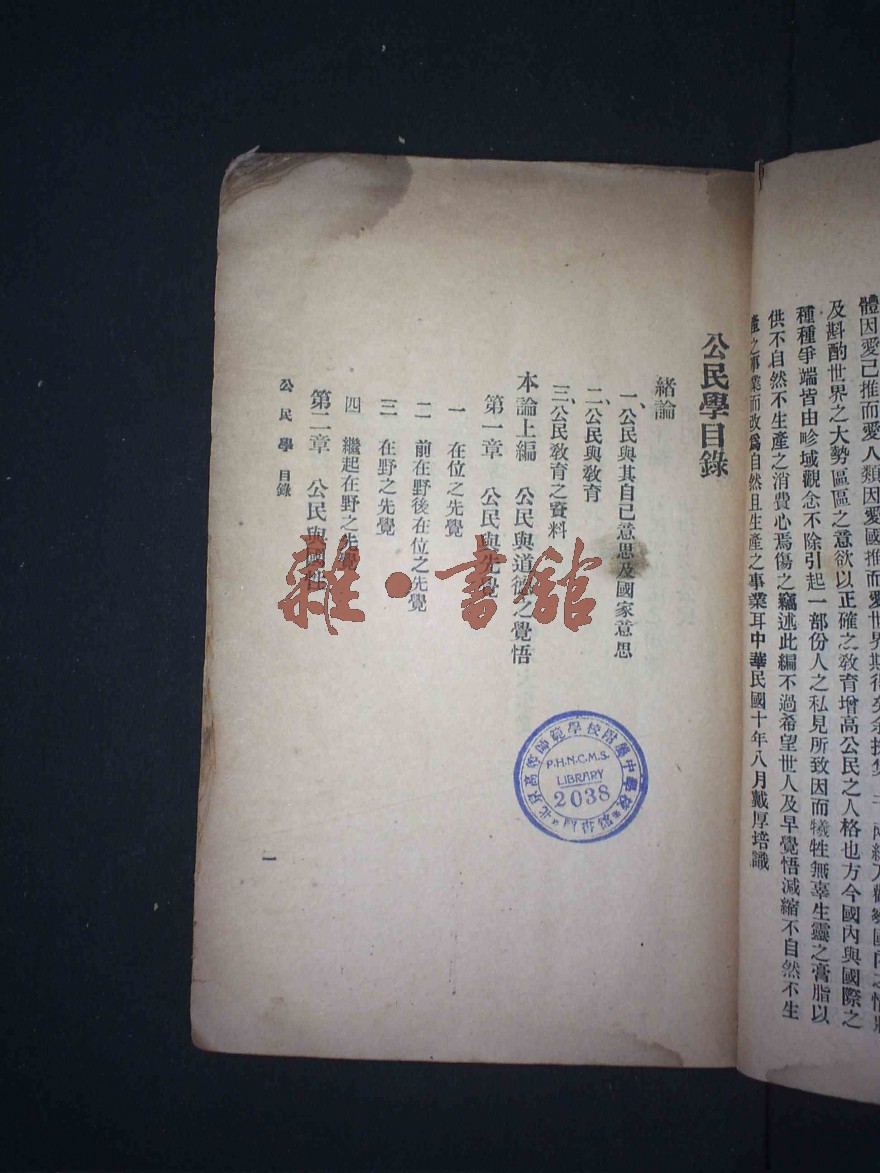 體因愛己推而愛人類因愛國推而愛世界
及斟酌世界之大勢區區之意欲以正確之敎育增高公民之人格也方今國內與國際之
種種爭端皆由畛域觀念不除引起一部份人之私見所致因而犧牲無辜生靈之膏脂以
供不自然不生產之消費心焉傷之竊述此編不過希望世人及早覺悟減縮不自然不生
產之事業而改爲自然且生產之事業耳中華民國十年八月戴厚培識
公民學目錄
緒論
一、公民與其自己意思及國家意思
二、公民與敎育
三、公民敎育之資料
本論上編 公民與道德之覺悟
第一章 公民與先覺
一 在位之先覺
二 前在野後在位之先覺
三 在野之先覺
四 繼起在野之先覺
第二章 公民與國性
公民學 目錄
一
雜·書館
北京高等師範學校附屬中學校
P.H.N.C.M.S.
LIBRARY
2038